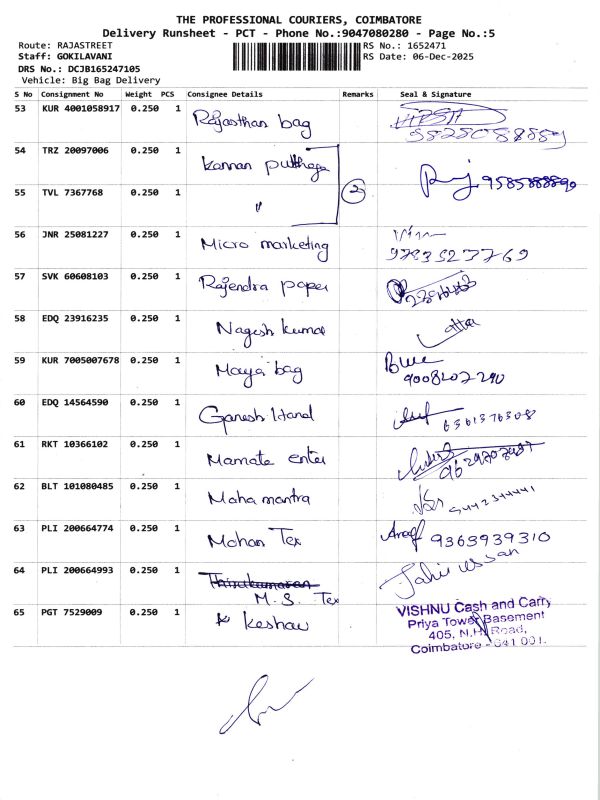 THE PROFESSIONAL COURIERS, COIMBATORE
Delivery Runsheet - PCT - Phone No.:9047080280 - Page No.:5
Route: RAJASTREET RS No.: 1652471
Staff: GOKILAVANI RS Date: 06-Dec-2025
DRS No.: DCJB165247105
Vehicle: Big Bag Delivery
S No Consignment No Weight PCS Consignee Details Remarks Seal & Signature
53 KUR 4001058917 0.250 1 Rajasthan bag
54 TRZ 20097006 0.250 1 Kannan
55 TVL 7367768 0.250 1 〃 2
56 JNR 25081227 0.250 1 Micro marketing
57 SVK 60608103 0.250 1 Rajendra paper
58 EDQ 23916235 0.250 1 Nagesh kumar
59 KUR 7005007678 0.250 1 Maya bag
9008202290
60 EDQ 14564590 0.250 1 Ganesh
6361376308
61 RKT 10366102 0.250 1 Mamata enter
62 BLT 101080485 0.250 1 Maha mantra
63 PLI 200664774 0.250 1 Mohan Tex 9363939310
64 PLI 200664993 0.250 1 Thirukumaran
M. S. Tex
65 PGT 7529009 0.250 1 K Keshav
VISHNU Cash and Carry
Priya Tower Basement
405, N.H. Road,
Coimbatore - 641 001.